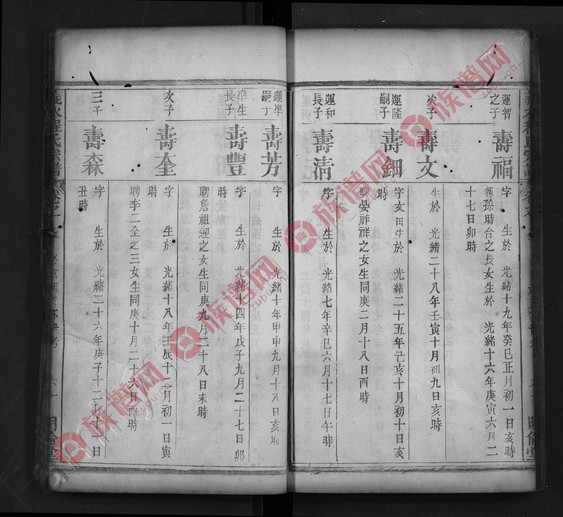 運智
之子
壽福
字　生於　光緒十九年癸巳正月初一日亥時
孫時台之長女生於　光緒十六年庚寅六月二
十七日卯時
次子
壽文
生於　光緒二十八年壬寅十月初九日亥時
運隆
嗣子
壽鈿
字亥田生於　光緒二十五年己亥十月初十日亥
時
聘晏祥祥之女生同庚二月十八日酉時
運和
長子
壽清
字　生於　光緒七年辛巳六月十七日午時
壽芳
字　生於　光緒十年甲申九月十八日亥時
長子
壽豐
字　生於　光緒十四年戊子九月二十七日卯
時
聘詹祖迎之女生同庚九月二十八日未時
次子
壽奎
字　生於　光緒十八年壬辰十二月初一日寅
時
聘李二全之三女生同庚十月二十六日酉時
三子
壽森
字　生於　光緒二十六年庚子十二月十一日
丑時
程氏宗譜
族谱网